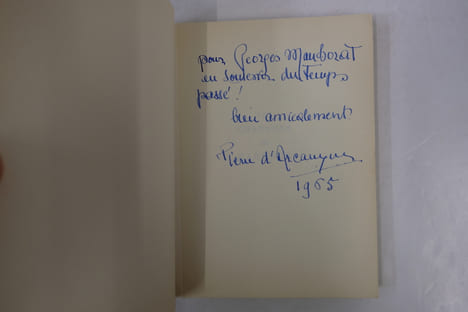 pour Georges Manborat
en souvenir du temps
passé !
bien amicalement
Pierre d'Arcangues
1965